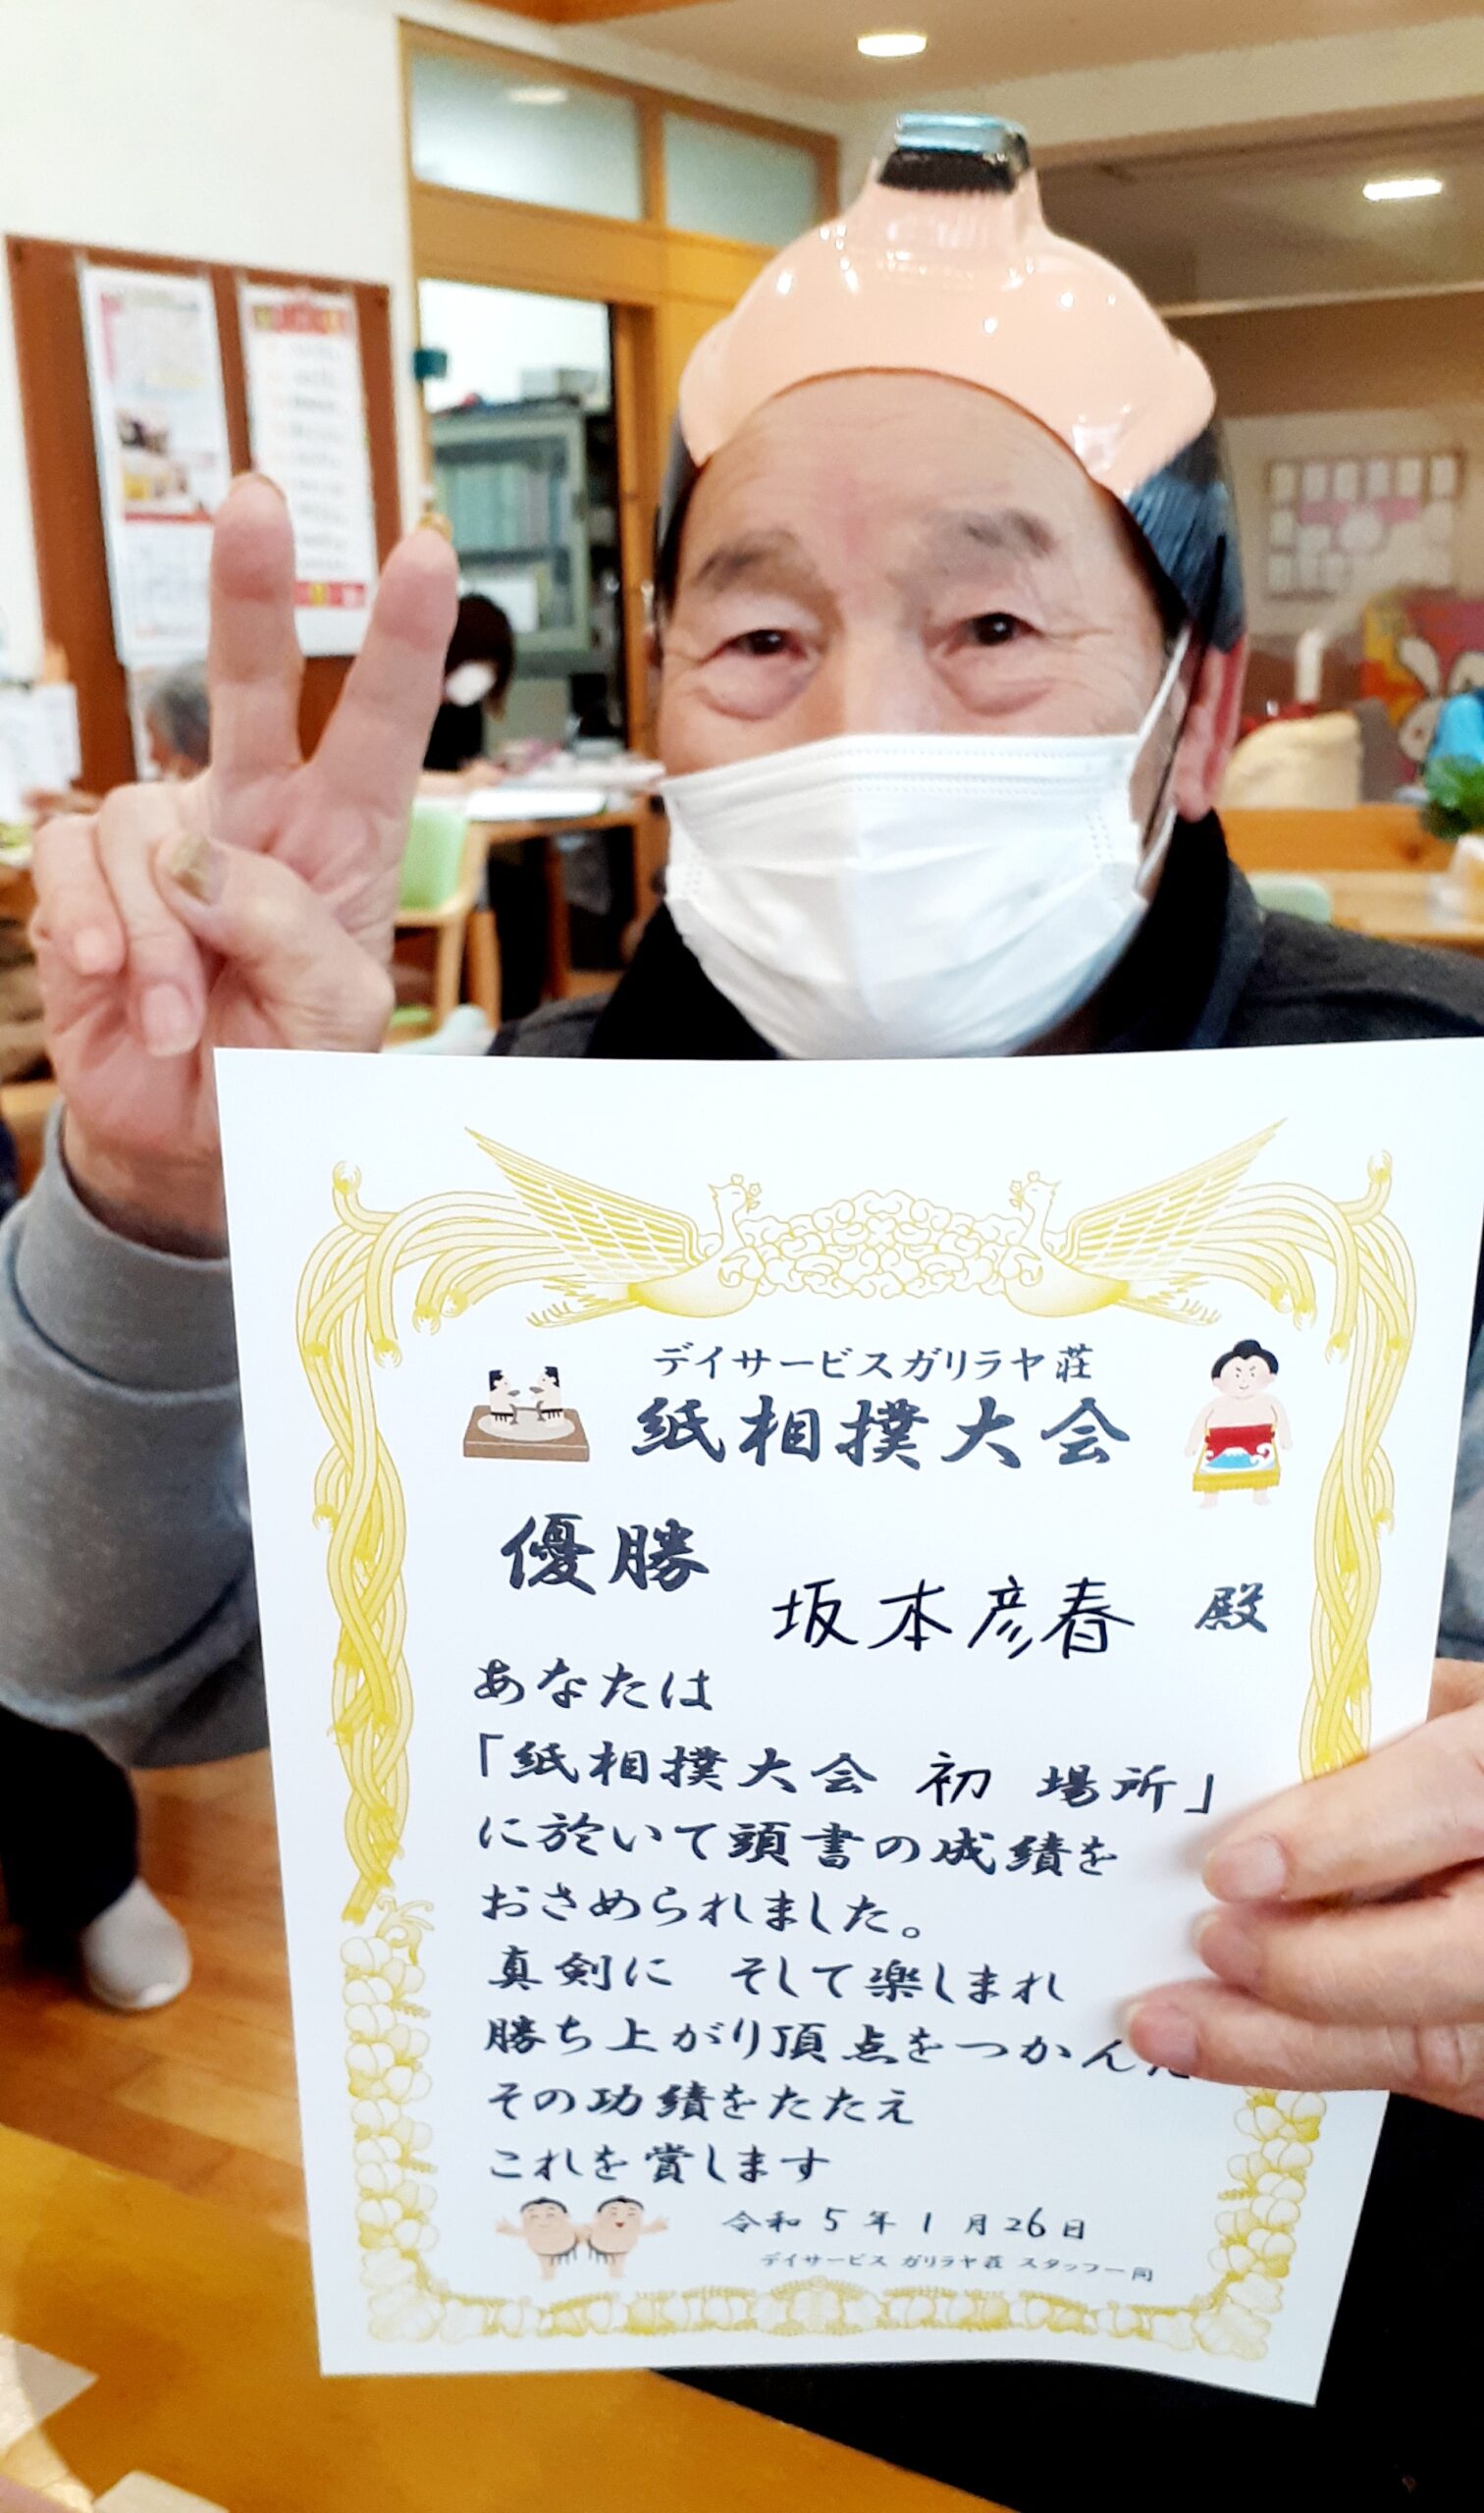 デイサービスガリラヤ荘
紙相撲大会
優勝
坂本彦春 殿
あなたは
「紙相撲大会 初 場所」
に於いて頭書の成績を
おさめられました。
真剣に そして楽しまれ
勝ち上がり頂点をつかんだ
その功績をたたえ
これを賞します
令和5年1月26日
デイサービス ガリラヤ荘 スタッフ一同